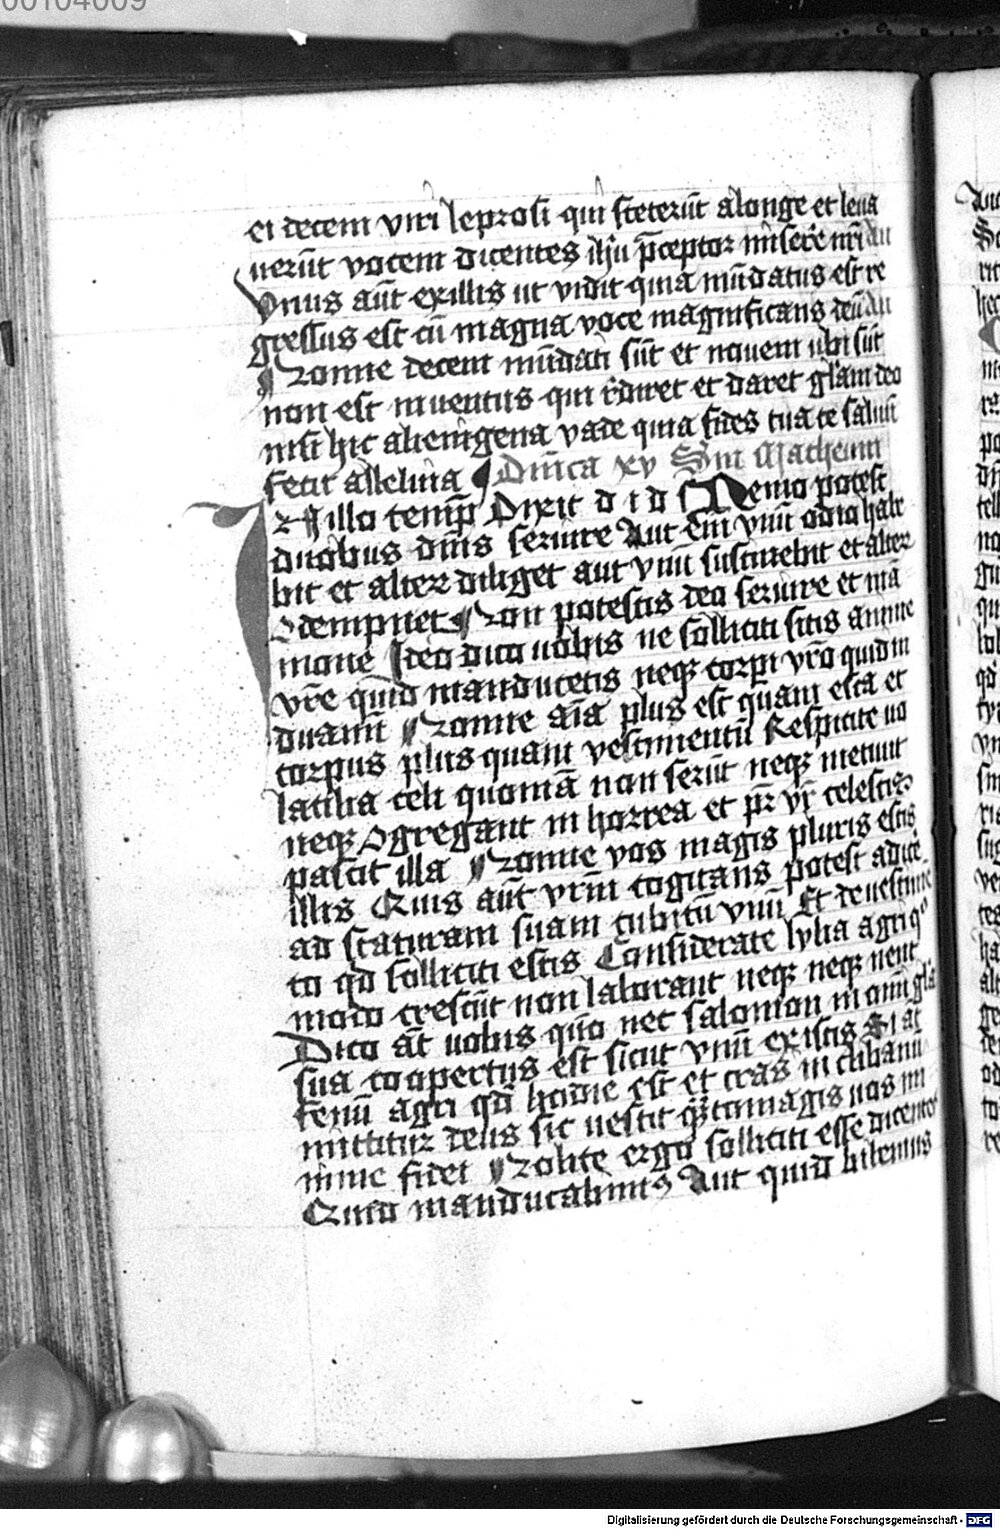 00104009
ei decem viri leprosi qui steterūt alonge et leua
uerūt vocem dicentes ihū p̄ceptor miserē nr̄i Au
Vnus aūt exillis ut vidit quia mūdatus est re
gressus est cū magna voce magnificans deū Au
Nonne decem mūdati sūt et nouem ubi sūt
non est inuentus qui rediret et daret glām deo
nisi hic alienigena vade quia fides tua te saluū
fecit alleluia Dnīca xv Sm̄ Matheum
In illo temp̄ Dixit d i d s Nemo potest
duobus dn̄is seruire Aut em̄ vnū odio habe
bit et alterr diliget aut vnū sustinebit et alter
ↄdempnet Non potestis deo seruire et mā
mone Ideo dico uobis ne solliciti sitis anime
vr̄e quid manducetis neqꝫ corpi vr̄o quid in
duamī Nonne aīa plus est quam esca et
corpus plus quam vestimentū Respicite uo
latilia celi quoniā non serūt neqꝫ metunt
neqꝫ ↄgregant in horrea et pr̄ vr̄ celestis
pascit illa Nonne vos magis pluris estis
illis Quis aūt vr̄m cogitans potest adice
ad staturam suam cubitū vnū Et de uestime
to qd solliciti estis Considerate lylia agri qo
modo crescūt non laborant neqꝫ neqꝫ nent
Dico āt uobis qm̄o nec salomon in omī gla
sua coopertus est sicut vnū ex istis Si āt
fenū agri qd hodie est et cras in clibanū
mittitur deus sic uestit qn̄to magis uos mi
nime fidei Nolite ergo solliciti esse dicentes
Quid manducabimꝰ Aut quid bibemus
Digitalisierung gefördert durch die Deutsche Forschungsgemeinschaft - DFG